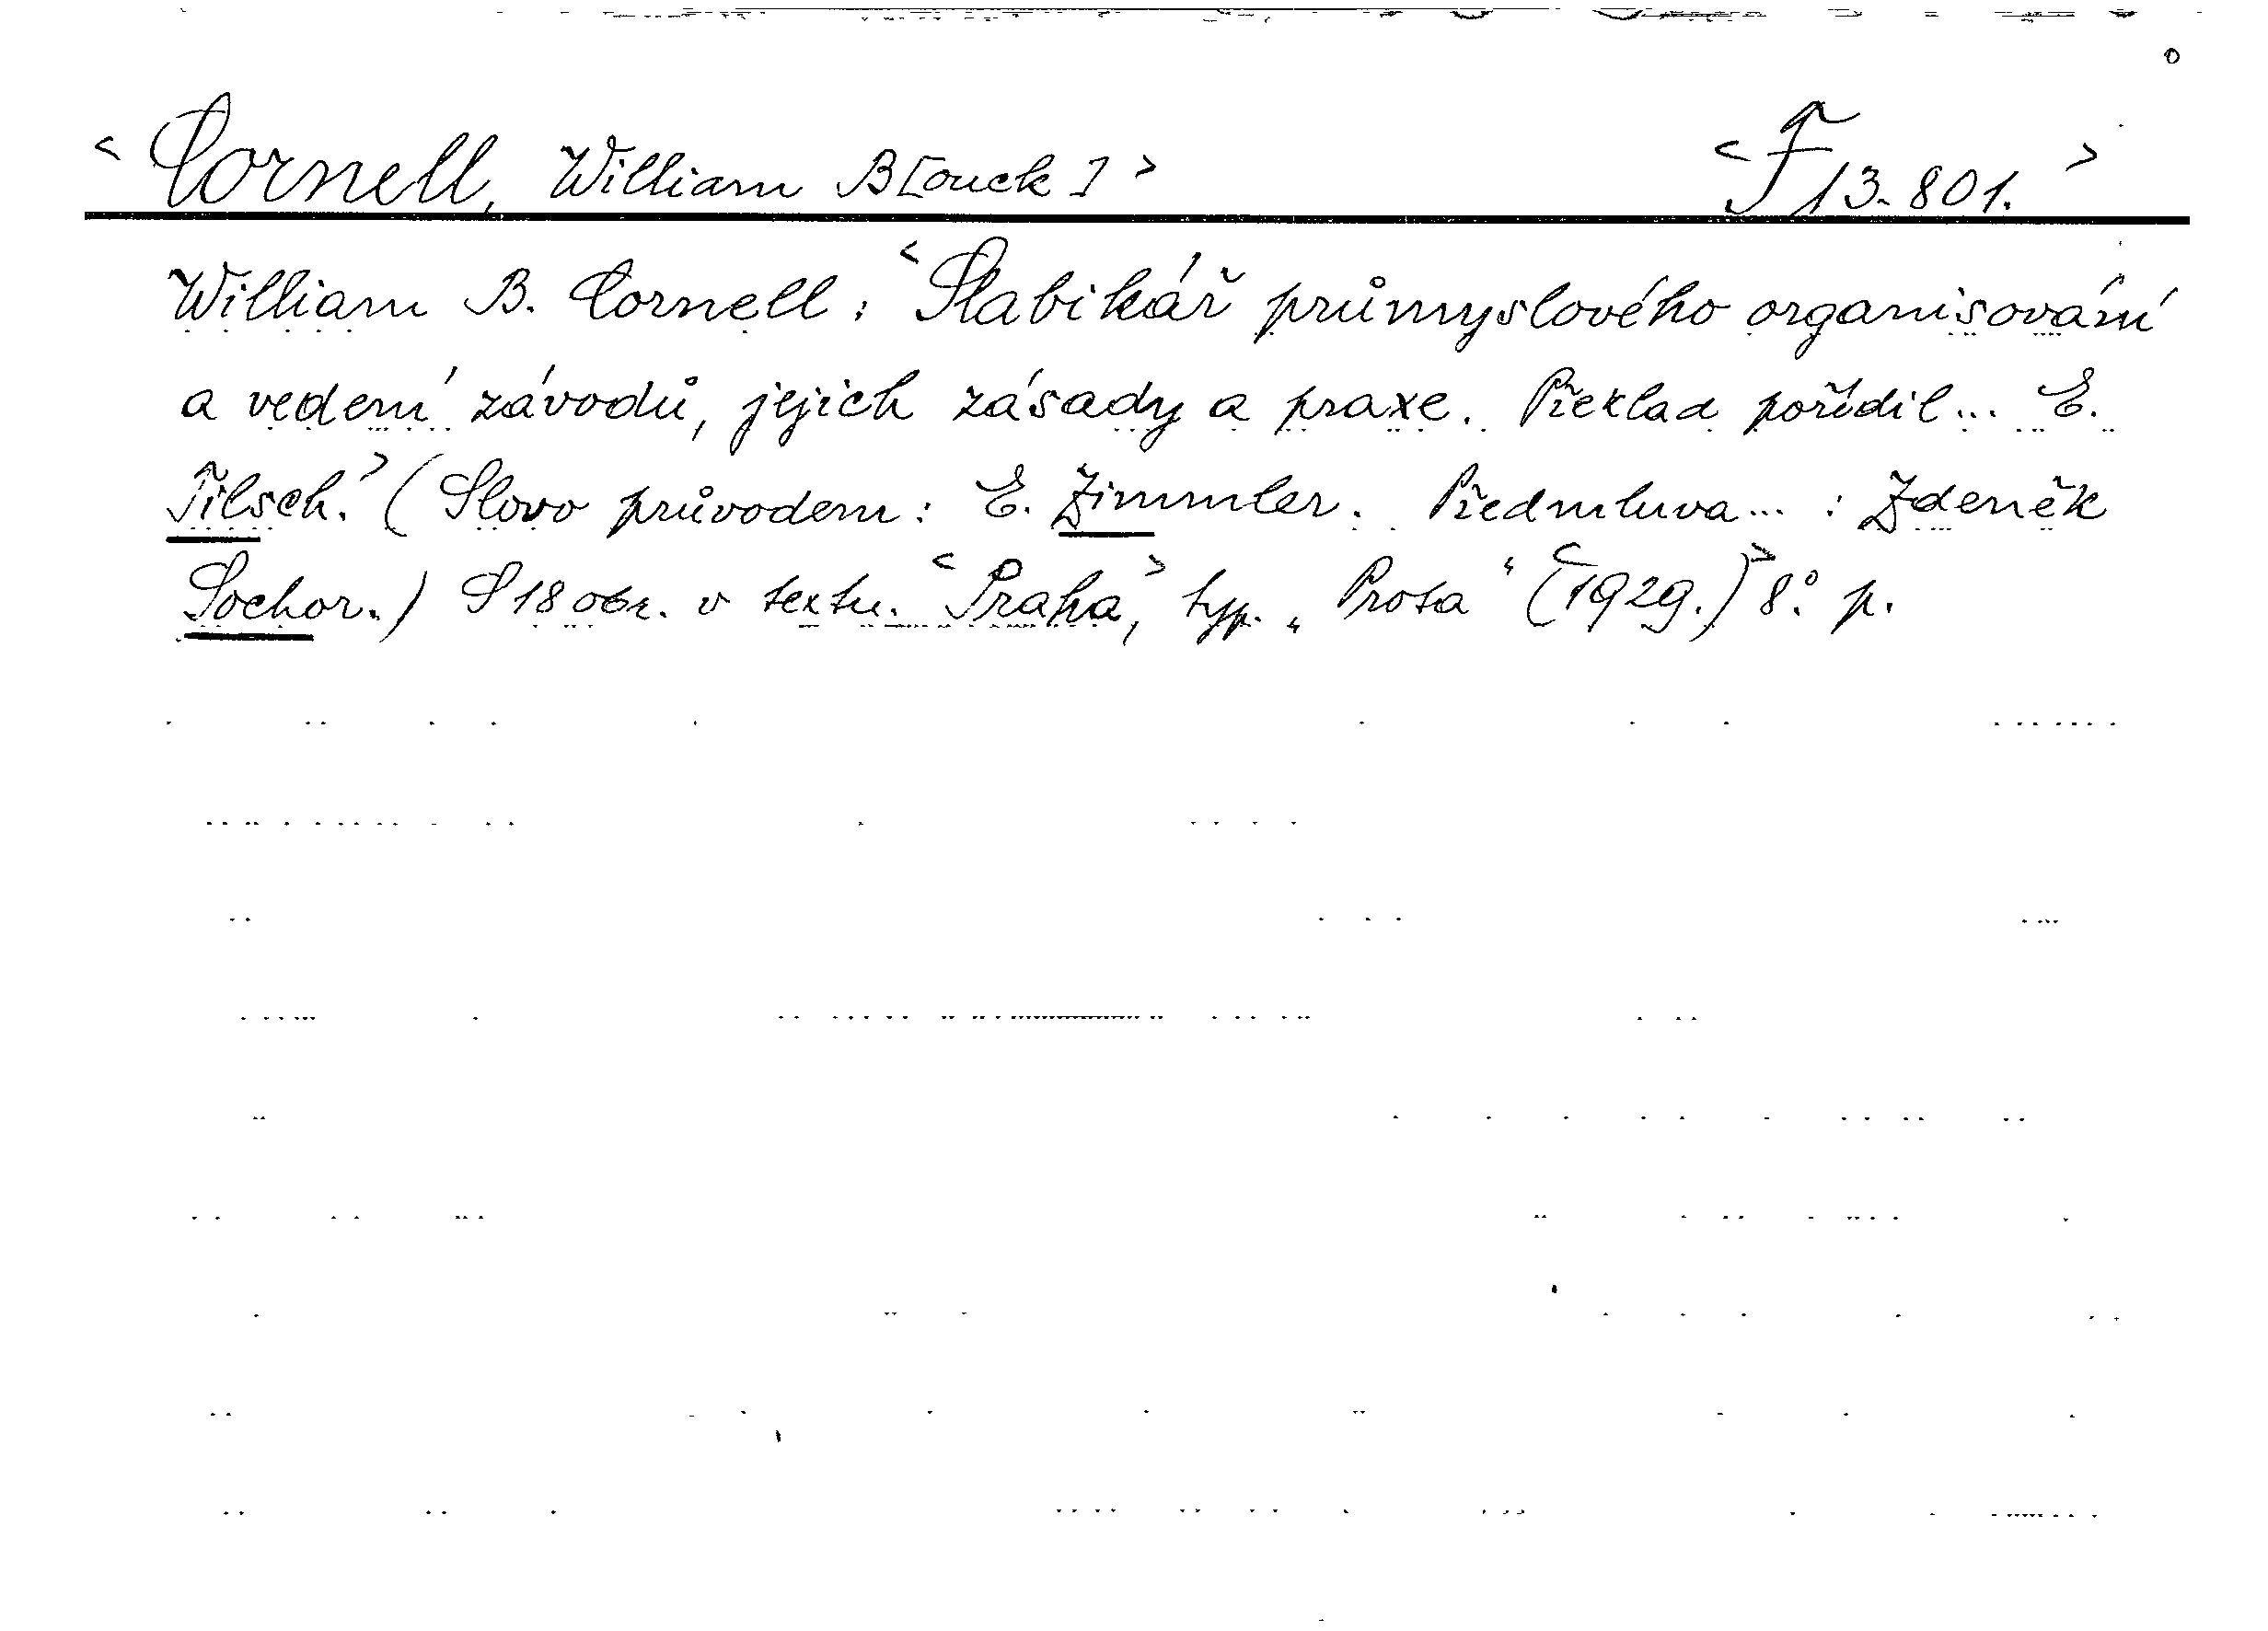 <Cornell, William B[ouck]> <F 13.801.>
William B. Cornell: <Slabikář průmyslového organisování
a vedení závodů, jejich zásady a praxe. Překlad pořídil... E.
Tilsch.> (Slovo průvodem: E. Zimmler. Předmluva... : Zdeněk
Sochor.) S 18 obr. v textu. <Praha,> typ. „Prosa“ <(1929.)> 8.° p.